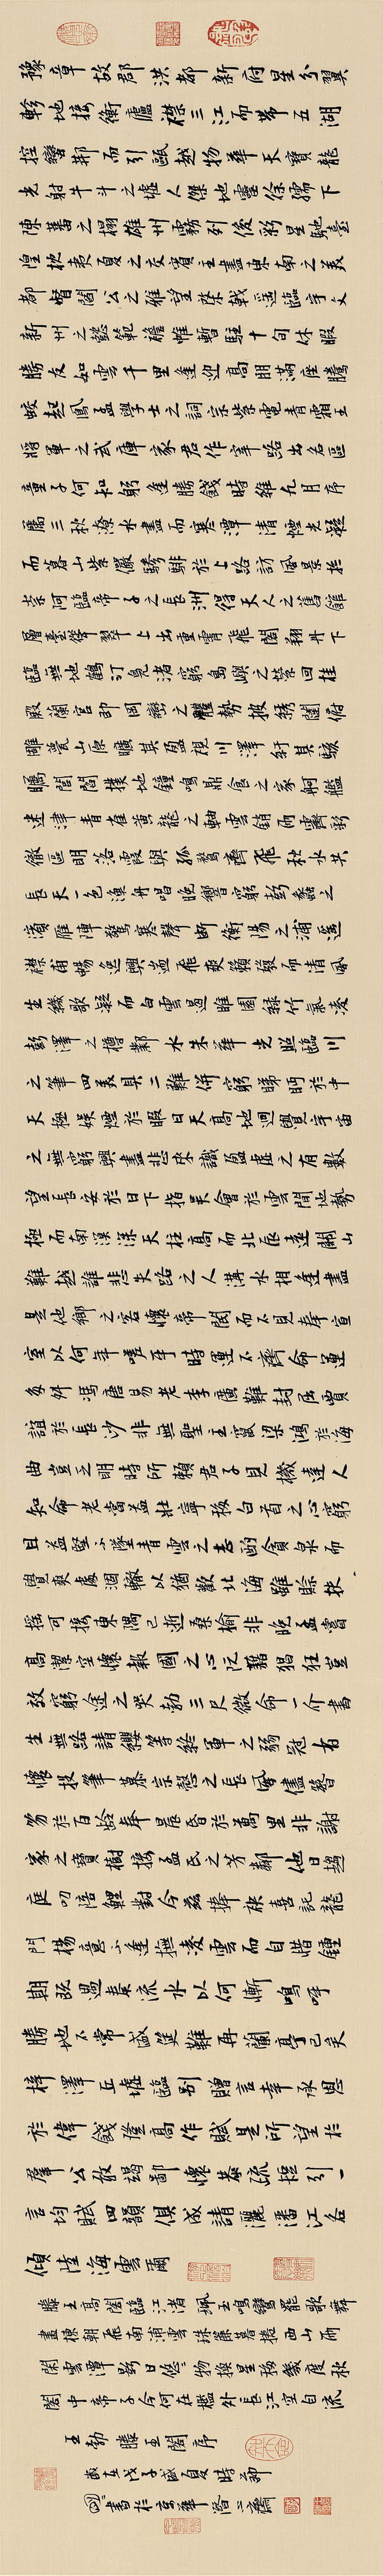 豫章故郡洪都新府星分翼
軫地接衡廬襟三江而帶五湖
控蠻荊而引甌越物華天寶龍
光射牛斗之墟人傑地靈徐孺下
陳蕃之榻雄州霧列俊彩星馳臺
隍枕夷夏之交賓主盡東南之美
都督閻公之雅望棨戟遥臨宇文
新州之懿範襜帷暫駐十旬休暇
勝友如雲千里逢迎高朋滿座騰
蛟起鳳孟學士之詞宗紫電青霜王
將軍之武庫家君作宰路出名區
童子何知躬逢勝餞時維九月序
屬三秋潦水盡而寒潭清煙光凝
而暮山紫儼驂騑於上路訪風景於
崇阿臨帝子之長洲得天人之舊館
層臺聳翠上出重霄飛閣翔丹下
臨無地鶴汀鳧渚窮島嶼之縈回桂
殿蘭宮即岡巒之體勢披繡闥俯
雕甍山原曠其盈視川澤紆其駭
矚閭閻撲地鐘鳴鼎食之家舸艦
迷津青雀黃龍之軸雲銷雨霽彩
徹區明落霞與孤鶩齊飛秋水共
長天一色漁舟唱晚響窮彭蠡之
濱雁陣驚寒聲斷衡陽之浦遥
襟甫暢逸興遄飛爽籟發而清風
生纖歌凝而白雲遏睢園綠竹氣凌
彭澤之樽鄴水朱華光照臨川
之筆四美具二難併窮睇眄於中
天極娛遊於暇日天高地迥覺宇宙
之無窮興盡悲來識盈虛之有數
望長安於日下指吳會於雲間地勢
極而南溟深天柱高而北辰遠關山
難越誰悲失路之人溝水相逢盡
是他鄉之客懷帝閽而不見奉宣
室以何年嗟乎時運不齊命運
多舛馮唐易老李廣難封屈賈
誼於長沙非無聖主竄梁鴻於海
曲豈乏明時所賴君子見機達人
知命老當益壯寧移白首之心窮
且益堅不墜青雲之志酌貪泉而
覺爽處涸轍以猶歡北海雖賒扶
搖可接東隅已逝桑榆非晚孟嘗
高潔空懷報國之心阮籍猖狂豈
效窮途之哭勃三尺微命一介書
生無路請纓等終軍之弱冠有
懷投筆慕宗愨之長風舍簪
笏於百齡奉晨昏於萬里非謝
家之寶樹接孟氏之芳鄰他日趨
庭叨陪鯉對今茲捧袂喜託龍
門楊意不逢撫凌雲而自惜鍾
期既遇奏流水以何慚嗚呼
勝地不常盛筵難再蘭亭已矣
梓澤丘墟臨別贈言幸承恩
於偉餞登高作賦是所望於
羣公敢竭鄙懷恭疏短引一
言均賦四韻俱成請灑潘江各
傾陸海雲爾
滕王高閣臨江渚珮玉鳴鸞罷歌舞
畫棟朝飛南浦雲珠簾暮捲西山雨
閑雲潭影日悠悠物換星移幾度秋
閣中帝子今何在檻外長江空自流
王勃滕王閣序
歲在戊子盛夏時節
書於京華